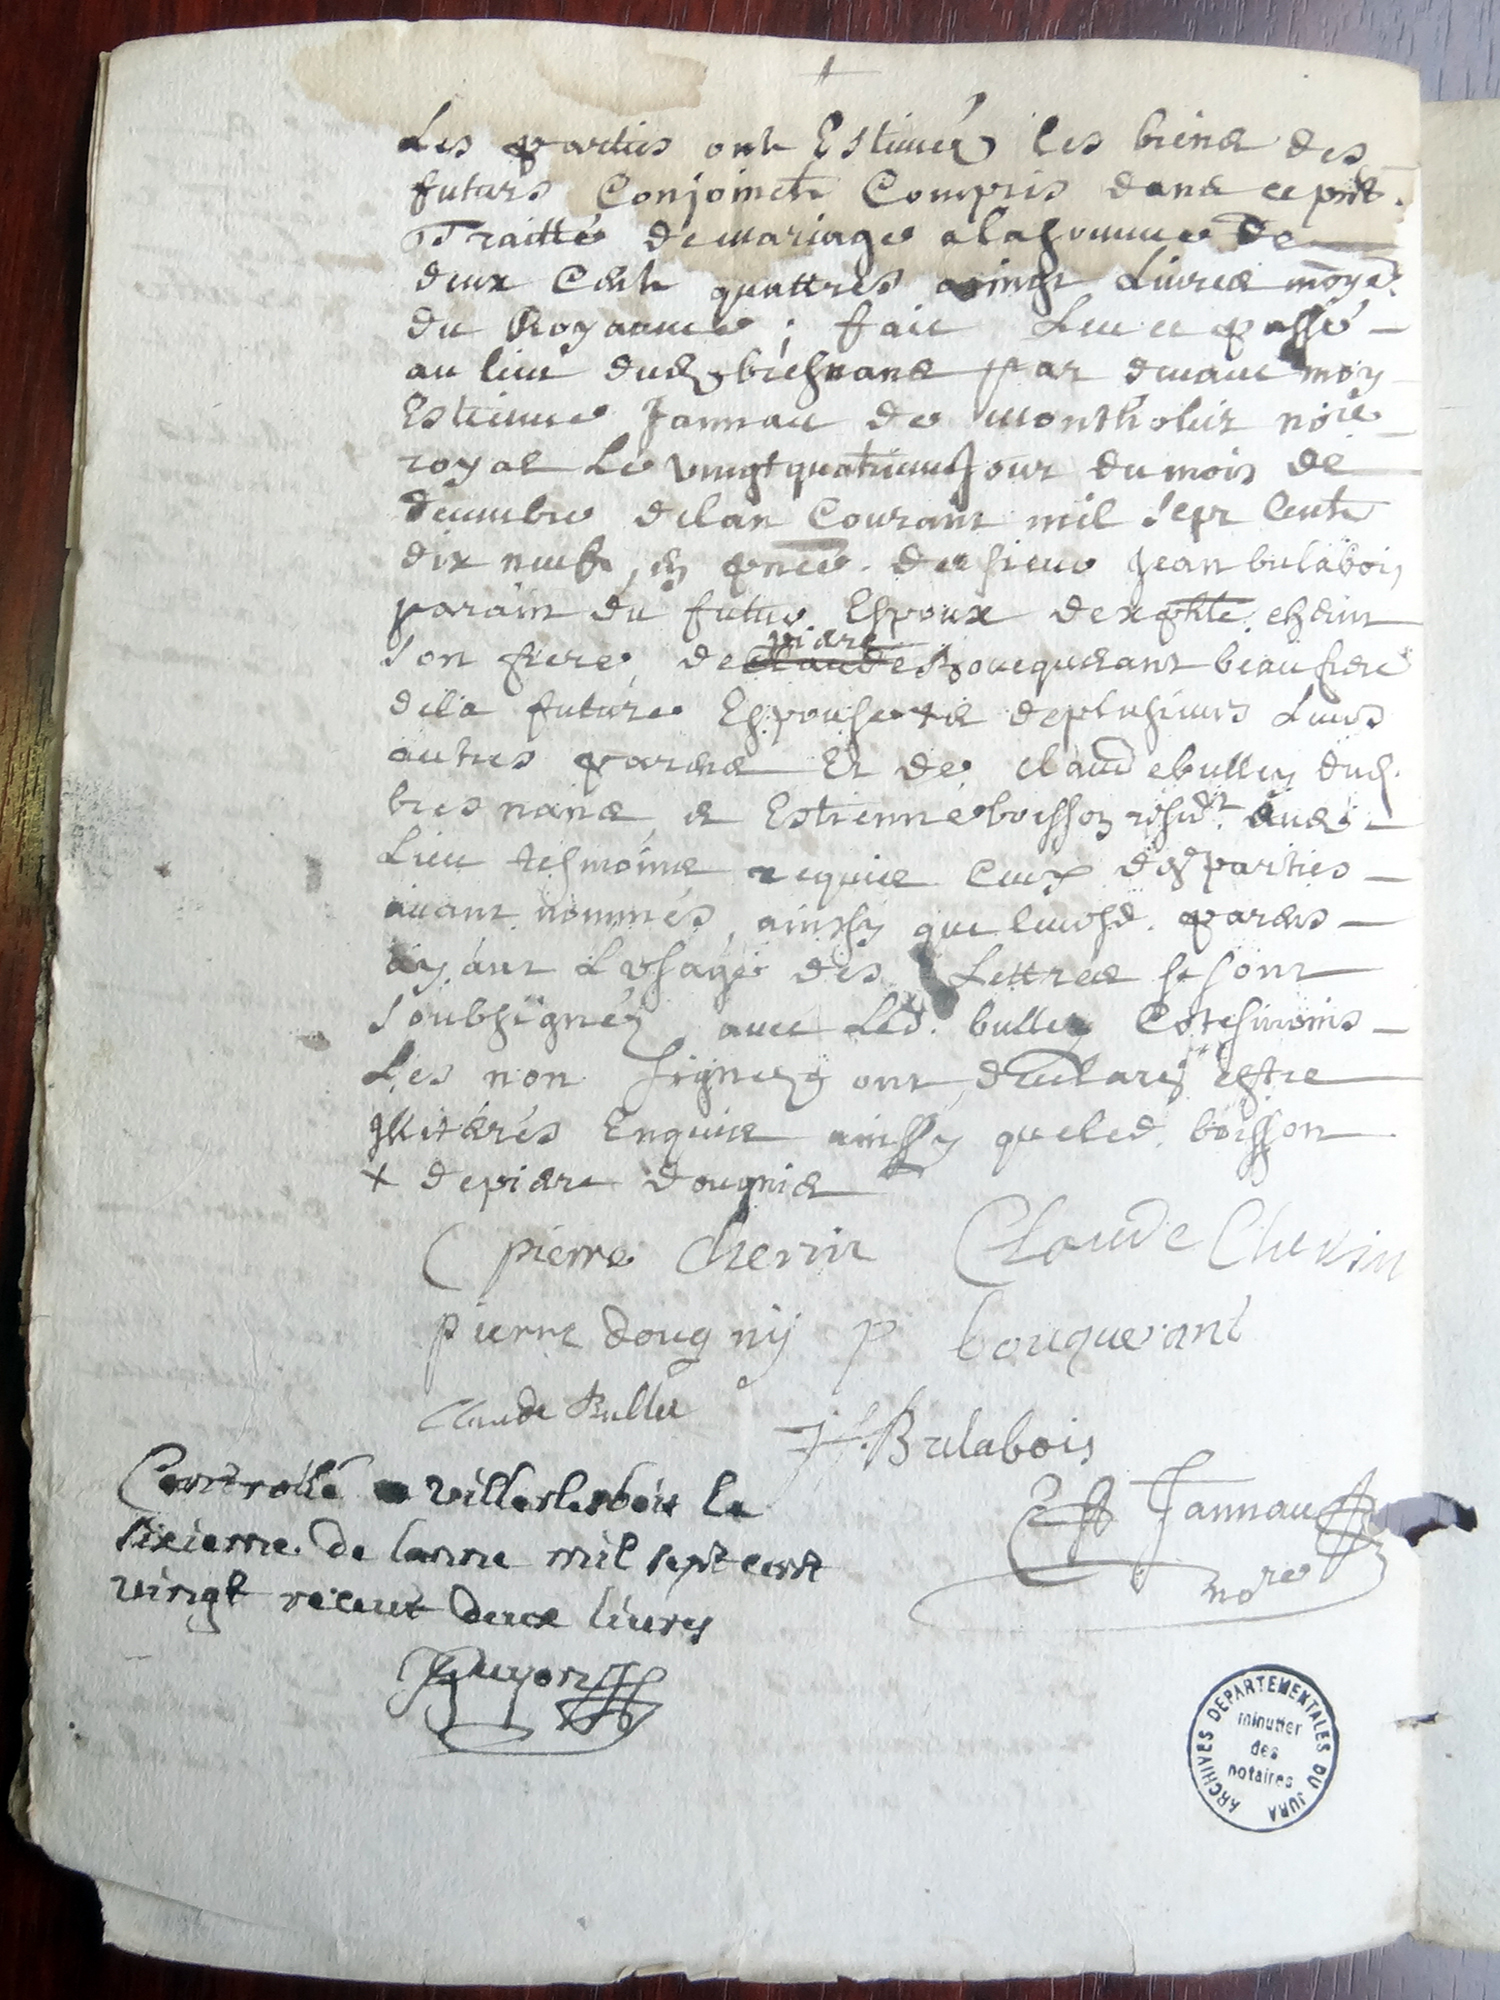 Les parties ont Estimés les biens des
futurs Conjoincts Compris dans ce pnt
Traitté de mariage a la somme de
deux Cents quattres vingt Livres moye
du Royaume ; fait Leu et passé
au lieu dud bresnans par devant moy
Estienne Jannau de montholier noire
royal Le vingt quatrieme Jour du mois de
decembre de lan Courant mil sept Cents
dix neufs, en pnce. de sieur Jean bulabois
parain du futur Espoux de
son frere, de claude piere Bouquerant beau frere
de la future Espouse et de plusieurs Leurs
autres parens Et de claude bulley dud.
bresnans et Estienne boisson residt aud.
Lieu tesmoins requis Ceux des parties
avant nommés, ainssy que leursd. parens
ayant Lusage des Lettres se sont
soubsignéz avec Led. bulley
Les non signéz ont declarés estre
illiterés Enquis ainssy que led. boisson
+ de piere dougnie
pierre Chevin Claude Chevin
pierre dougny p bouquerant
Claude Bulley
J f. Bulabois
Controllé a le
sixieme de lanne mil sept cent
vingt receut deux livres
Est Jannau
nore
Guyon
ARCHIVES DEPARTEMENTALES DU JURA
minutier
des
notaires